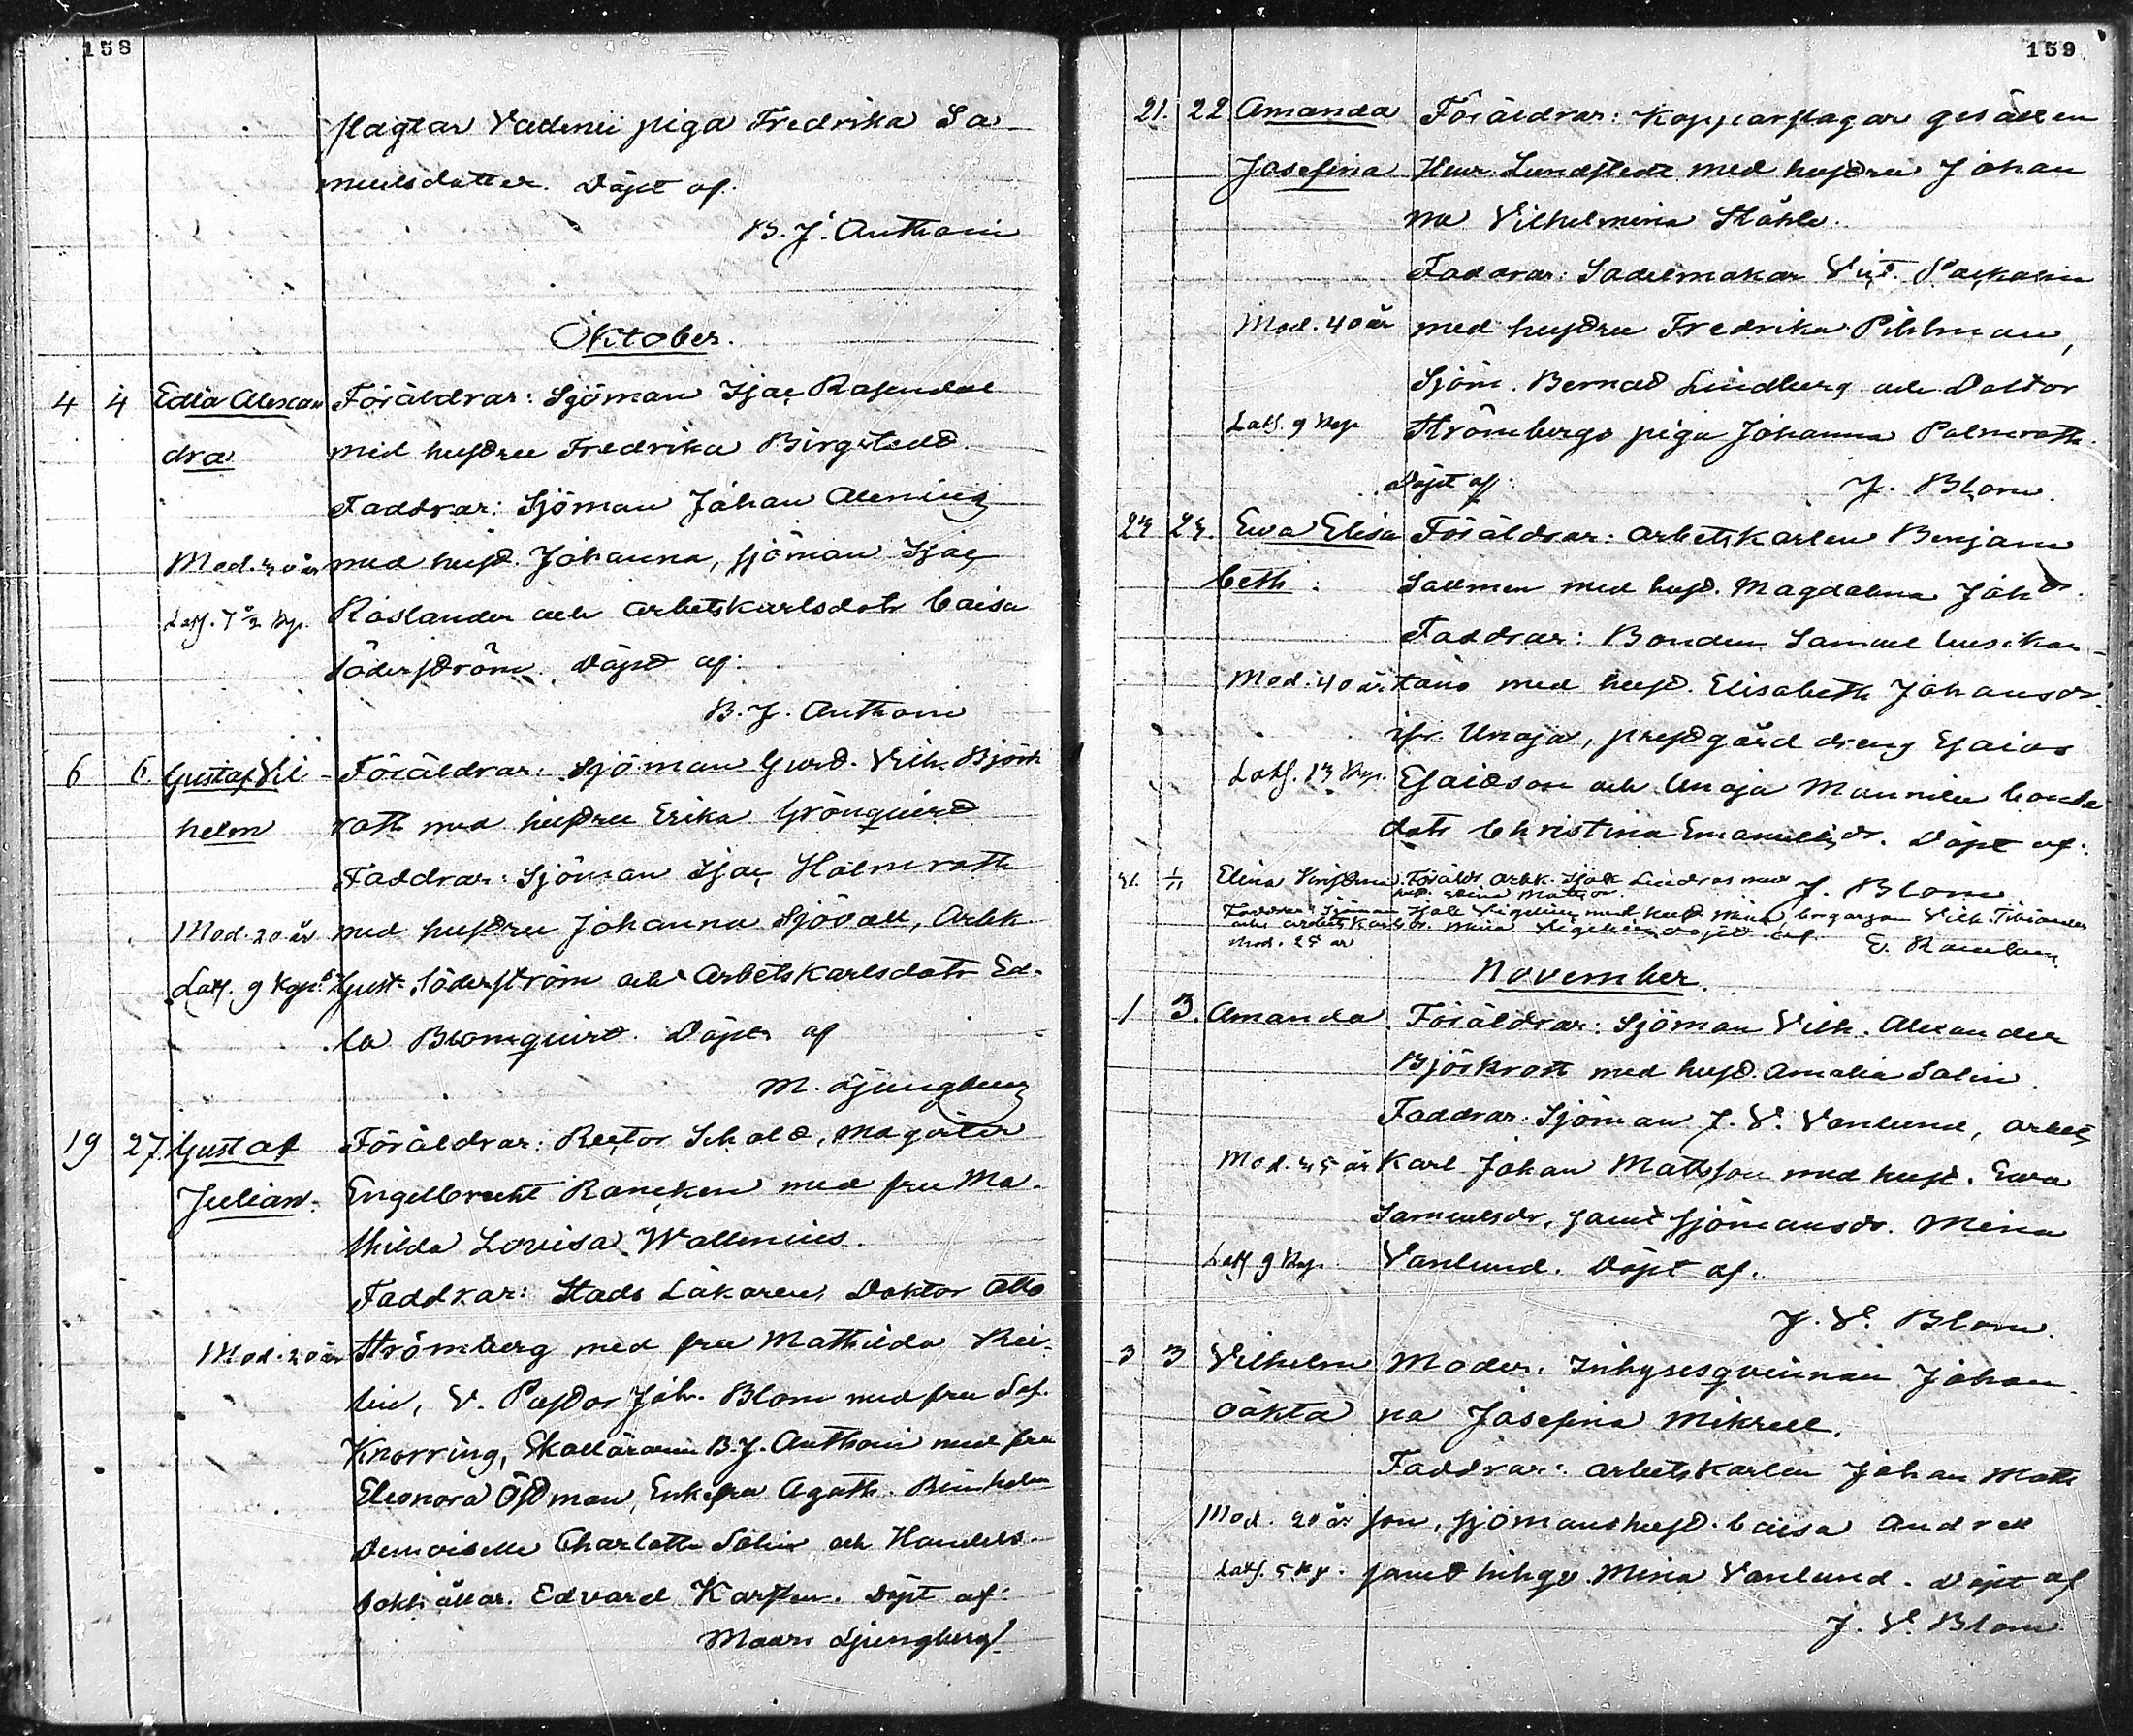 158
slagtar Vadenii piga Fredrika Sa
muelsdotter. Döpt af.
B. J. Anthoni
Oktober.
4 4 Edla Alexan Föräldrar: Sjöman Isac Rosendal
dra med hustru Fredrika Birgstedt
Faddrar: Sjöman Johan Alenius
Mod. 30 år med hust. Johanna, sjöman Isac
Roslander och arbetskarlsdotr Caisa
Söderström. Döpt af:
B. J. Anthoni
6 6. Gustaf Vil- Föräldrar: Sjöman Gust. Vilh. Björk
helm roth med hustru Erika Grönquist
Faddrar: Sjöman Isac Holmroth
Mod. 20 år med hustru Johanna Sjövall, Arbk
Lösf. 9 Kop. Gust. Söderström och Arbetskarlsdotr Ed-
la Blomquist. Döpt af
M. Ljungberg
19 27. Gustaf Föräldrar: Rector Schol, Magister
Julian. Engelbrecht Rancken med fru Ma-
thilda Lovisa Wallenius.
Faddrar: Stads Läkaren, Doktor Otto
Mod. 20 år Strömberg med fru Mathilda
V. Pastor Joh. Blom med fru Sof.
Knorring, B. J. Anthoni med fru
Eleonora Östman, Enkefru Agath. Reinholm
Demoiselle Charlotte Sölin och Handels-
bokhållar. Edvard Karsten. Döpt af:
Maur. Ljungberg
159.
21. 22 Amanda Föräldrar: Kopparslagar gesällen
Josefina Henr. Lundstedt med hustru Johan
na Vilhelmina Ståhle.
Faddrar: Sadelmakar Vict. Packalin
Mod. 40 år med hustru Fredrika Pihlman,
Sjöm. Bernad Lindberg och Doktor
Lösf. 9 Kop. Strömbergs piga Johanna Palmroth.
Döpt af: J. Blom.
23 23. Eva Elisa Föräldrar: Arbetskarlen Benjam
beth. Sallmen med hust. Magdalena Johdr.
Faddrar: Bonden Samuel Uusikar-
Mod. 40 år tano med hust. Elisabeth Johansdr.
ifr. Unaja, prestgård dreng Esaias
Lösf. 13 Kop. Esaidson och Unaja Mannila bonde
dotr Christina Emanuelsdr. Döpt af:
J. Blom
31. 1/11 Elina Föräldr. Arbk. Isak Lindros med
hust.
Faddrar: Sjöman Isak Sigelius med hust. Mina, borgaren Vilh.
och arbetskarlsdr. Mina Sigelius, Döpt af.
Mod. 28 år E. Rancken
November.
1 3. Amanda. Föräldrar: Sjöman Vilh. Alexander
Björkroth med hust. Amalia Salin.
Faddrar: Sjöman J. V. Vanlund, arbets
Mod. 35 år Karl Johan Mattsson med hust. Eva
Samuelsdr, samt sjömansdr. Mina
Lösf. 9 Kop. Vanlund. Döpt af.
J. V. Blom.
3 3 Vilhelm Moder: Inhysesqvinnan Johan-
oäkta na Josefina Mikrell.
Faddrar: arbetskarlen Johan Matts
Mod. 20 år son, sjömanshust. Caisa Andrell
Lösf. 5 Kp. samt Inhqv. Mina Vanlund. Döpt af
J. V. Blom